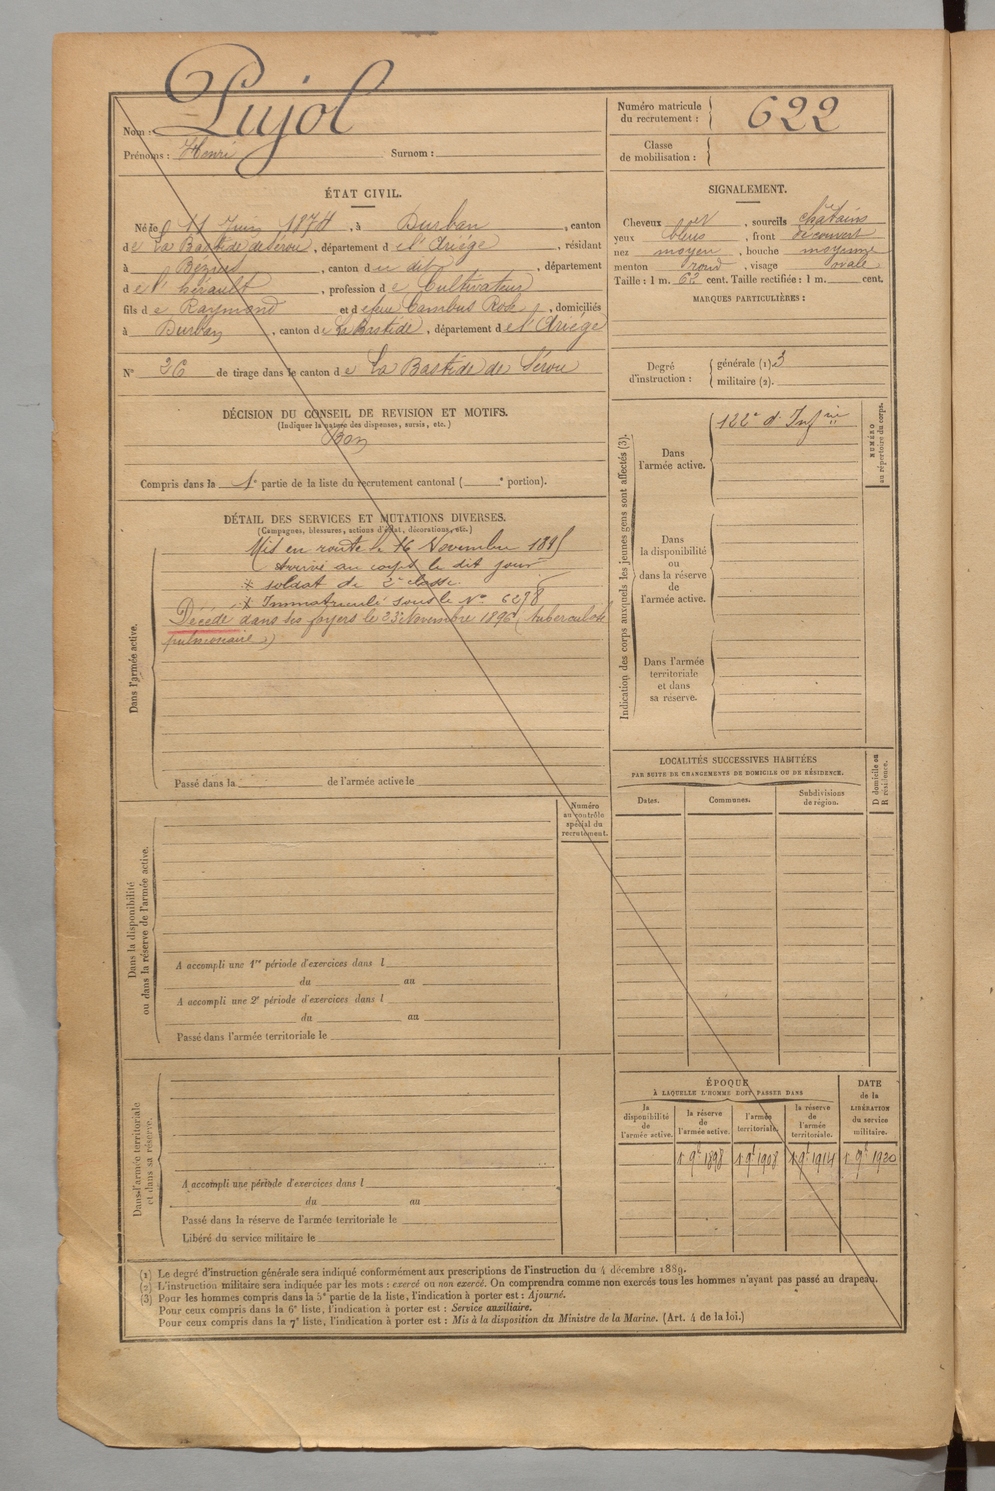 Nom : Pujol
Prénoms : Henri Surnom :
Numéro matricule du recrutement : 622
Classe de mobilisation :
ÉTAT CIVIL.
Né le 11 Juin 1874, à Durban, canton
de La Bastide de Sérou, département de l'Ariége, résidant
à , canton du dit, département
de l'hérault, profession de Cultivateur
fils de Raymond et de feue Cambus Rose, domiciliés
à Durban, canton de La Bastide, département de l'Ariége
N° 36 de tirage dans le canton de La Bastide de Sérou
DÉCISION DU CONSEIL DE REVISION ET MOTIFS.
(Indiquer la nature des dispenses, sursis, etc.)
Bon
Compris dans la 1e partie de la liste du recrutement cantonal ( e portion).
SIGNALEMENT.
Cheveux et, sourcils châtains
yeux bleus, front découvert
nez moyen, bouche moyenne
menton rond, visage ovale
Taille : 1 m. 62 cent. Taille rectifiée : 1 m. cent.
MARQUES PARTICULIÈRES :
Degré d'instruction : générale (1). 3
militaire (2).
DÉTAIL DES SERVICES ET MUTATIONS DIVERSES.
(Campagnes, blessures, actions d'éclat, décorations, etc.)
Dans l'armée active.
Mis en route le 16 Novembre 1895
Arrivé au corps le dit jour
* soldat de 2e classe.
* Immatriculé sous le N° 6278
Décédé dans ses foyers le 23 Novembre 1896 (tuberculose
pulmonaire)
Passé dans la de l'armée active le
Indication des corps auxquels les jeunes gens sont affectés (3).
Dans
l'armée active.
122e d'Infie
NUMÉRO
au répertoire du corps.
Dans
la disponibilité
ou
dans la réserve
de
l'armée active.
Dans l'armée
territoriale
et dans
sa réserve.
LOCALITÉS SUCCESSIVES HABITÉES
PAR SUITE DE CHANGEMENTS DE DOMICILE OU DE RÉSIDENCE.
Dates. Communes. Subdivisions de région.
D domicile ou
R résidence.
Numéro
au contrôle
spécial du
recrutement.
Dans la disponibilité
ou dans la réserve de l'armée active.
A accompli une 1re période d'exercices dans l
du au
A accompli une 2e période d'exercices dans l
du au
Passé dans l'armée territoriale le
Dans l'armée territoriale
et dans sa réserve.
A accompli une période d'exercices dans l
du au
Passé dans la réserve de l'armée territoriale le
Libéré du service militaire le
ÉPOQUE
À LAQUELLE L'HOMME DOIT PASSER DANS
la disponibilité de l'armée active.
la réserve de l'armée active.
l'armée territoriale.
la réserve de l'armée territoriale.
DATE
de la
LIBÉRATION
du service
militaire.
1 9e 1898 1 9e 1908 1 9e 1914 1 9e 1920
(1) Le degré d'instruction générale sera indiqué conformément aux prescriptions de l'instruction du 4 décembre 1889.
(2) L'instruction militaire sera indiquée par les mots : exercé ou non exercé. On comprendra comme non exercés tous les hommes n'ayant pas passé au drapeau.
(3) Pour les hommes compris dans la 5e partie de la liste, l'indication à porter est : Ajourné.
Pour ceux compris dans la 6e liste, l'indication à porter est : Service auxiliaire.
Pour ceux compris dans la 7e liste, l'indication à porter est : Mis à la disposition du Ministre de la Marine. (Art. 4 de la loi.)